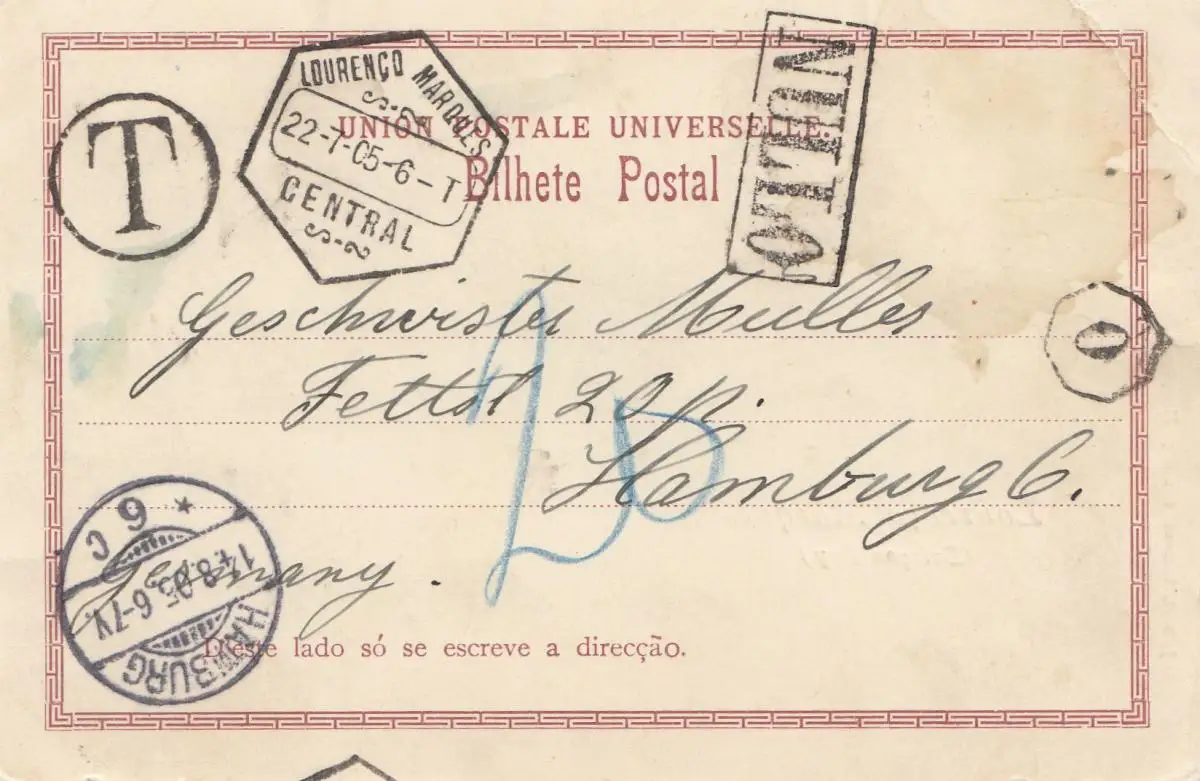 T
LOURENÇO MARQUES
22-7-05-6-T
CENTRAL
S-2
NULLO
UNION POSTALE UNIVERSELLE.
Bilhete Postal
0
Geschwister Muller
20 p.
Hamburg 6.
20
Germany.
HAMBURG
14.8.05.6-7V.
* 6 c
Deste lado só se escreve a direcção.